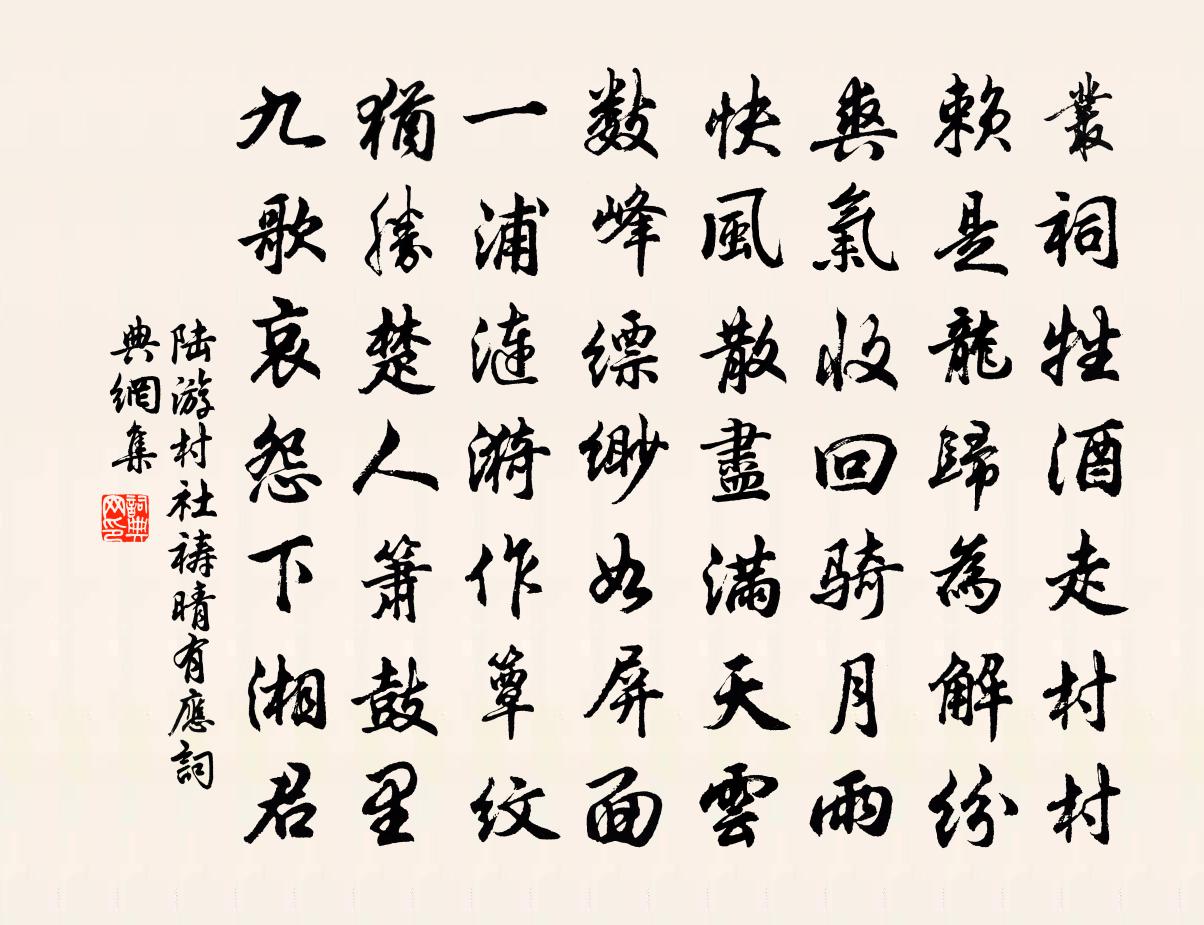 叢祠牲酒走村村
賴是龍歸為解紛
爽氣收回骑月雨
快風散盡滿天雲
數峰縹緲如屏面
一浦漣漪作簟紋
猶勝楚人簫鼓里
九歌哀怨下湘君
陆游村社禱晴有應詞
典網集
詞典
网印